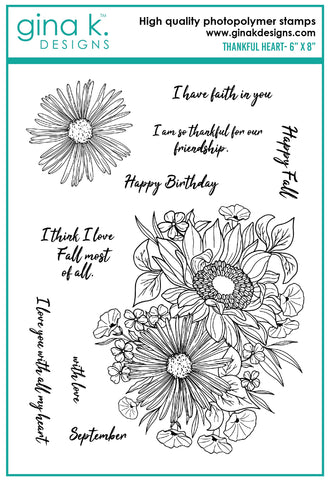 gina k.
DESIGNS
High quality photopolymer stamps
www.ginakdesigns.com
THANKFUL HEART- 6" X 8"
I have faith in you
I am so thankful for our
friendship.
Happy Fall
Happy Birthday
I think I love
Fall most
of all.
I love you with all my heart
with love
September